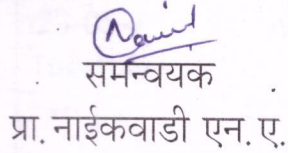 समन्वयक
प्रा. नाईकवाडी एन. ए.